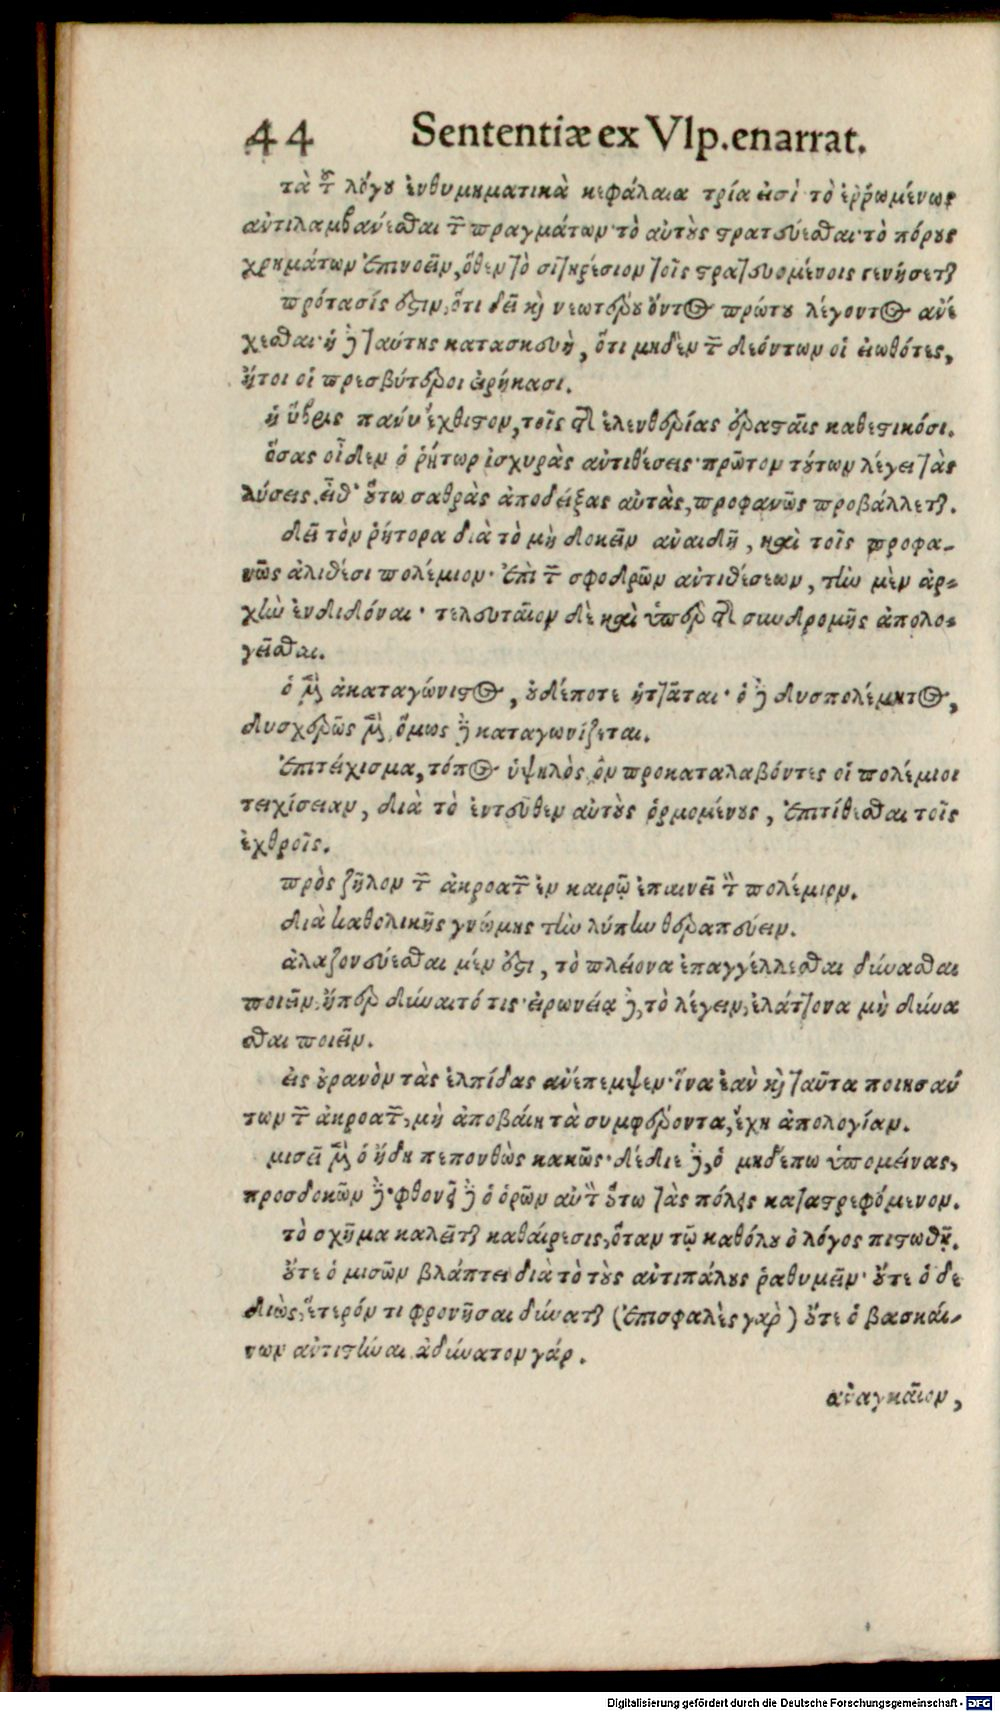 44 Sententiæ ex Vlp. enarrat.
τὰ τοῦ λόγου ἐνθυμηματικὰ κεφάλαια τρία εἰσὶ· τὸ ἐῤῥωμένως
ἀντιλαμβάνεσθαι τῶν πραγμάτων· τὸ αὐτοὺς στρατεύεσθαι· τὸ πόρους
χρημάτων ἐπινοεῖν, ὅθεν τὸ σιτηρέσιον τοῖς στρατευομένοις γενήσεται
πρότασίς ἐστιν, ὅτι δεῖ καὶ νεωτέρου ὄντος πρώτου λέγοντος ἀνέ
χεσθαι· ἡ δὲ ταύτης κατασκευὴ, ὅτι μηδὲν τῶν δεόντων οἱ εἰωθότες,
ἤτοι οἱ πρεσβύτεροι εἰρήκασι.
ἡ ὕβρις πάνυ ἔχθιστον, τοῖς τῆς ἐλευθερίας ἐρασταῖς καθεστικόσι.
ὅσας οἶδεν ὁ ῥήτωρ ἰσχυρὰς ἀντιθέσεις· πρῶτον τούτων λέγει τὰς
λύσεις, εἶθ' οὕτω σαθρὰς ἀποδείξας αὐτὰς, προφανῶς προβάλλεται.
δεῖ τὸν ῥήτορα διὰ τὸ μὴ δοκεῖν ἀναιδῆ, καὶ τοῖς προφα-
νῶς ἀλιθέσι πολέμιον· ἐπὶ τῶν σφοδρῶν ἀντιθέσεων, τὴν μὲν ἀρ-
χὴν ἐνδιδόναι· τελευταῖον δὲ καὶ ὑπὲρ τῆς συνδρομῆς ἀπολο-
γεῖσθαι.
ὁ μὲν ἀκαταγώνιστος, οὐδέποτε ἡττᾶται· ὁ δὲ δυσπολέμητος,
δυσχερῶς μὲν, ὅμως δὲ καταγωνίζεται.
ἐπιτείχισμα, τόπος ὑψηλὸς, ὃν προκαταλαβόντες οἱ πολέμιοι
τειχίσειαν, διὰ τὸ ἐντεῦθεν αὐτοὺς ὁρμομένους, ἐπιτίθεσθαι τοῖς
ἐχθροῖς.
πρὸς ζῆλον τῶν ἀκροατῶν ἐν καιρῷ ἐπαινεῖ τὸν πολέμιον.
διὰ καθολικῆς γνώμης τὴν λύπην θεραπεύειν.
ἀλαζονεύεσθαι μέν ἐστι, τὸ πλείονα ἐπαγγέλλεσθαι δύνασθαι
ποιεῖν, ἤπερ δύναιτό τις· εἰρωνεία δὲ, τὸ λέγειν, ἐλάττονα μὴ δύνα
σθαι ποιεῖν.
εἰς οὐρανὸν τὰς ἐλπίδας ἀνέπεμψεν· ἵνα ἐὰν καὶ ταῦτα ποιησάν
των τῶν ἀκροατῶν, μὴ ἀποβαίη τὰ συμφέροντα, ἔχη ἀπολογίαν.
μισεῖ μὲν ὁ ἤδη πεπονθὼς κακῶς· δέδιε δὲ, ὁ μηδέπω ὑπομείνας,
προσδοκῶν δέ· φθονεῖ δὲ ὁ ὁρῶν αὐτὸν οὕτω τὰς πόλεις καταστρεφόμενον.
τὸ σχῆμα καλεῖται καθαίρεσις, ὅταν τῷ καθόλου ὁ λόγος πιστωθῇ.
οὔτε ὁ μισῶν βλάπτει διὰ τὸ τοὺς ἀντιπάλους ῥαθυμεῖν· οὔτε ὁ δε
διὼς, ἕτερόν τι φρονῆσαι δύναται (ἐπισφαλὲς γὰρ) οὔτε ὁ βασκαί-
νων ἀντιστῆναι, ἀδύνατον γάρ.
ἀναγκαῖον,
Digitalisierung gefördert durch die Deutsche Forschungsgemeinschaft - DFG